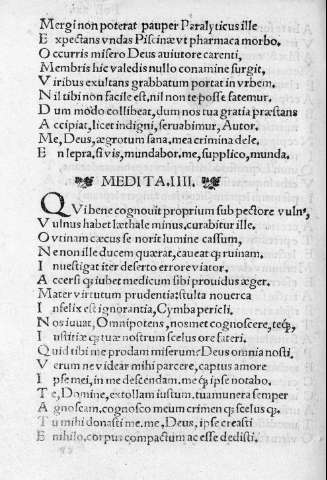 Mergi non poterat pauper Paralyticus ille
Expectans vndas Piscinæ vt pharmaca morbo.
Occurris misero Deus auiutore carenti,
Membris hic validis nullo conamine surgit,
Viribus exultans grabbatum portat in vrbem.
Nil tibi non facile est, nil non te posse fatemur.
Dum modo collibeat, dum nos tua gratia præstans
Accipiat, licet indigni, seruabimur, Autor.
Me, Deus, ægrotum sana, mea crimina dele.
En lepra, si vis, mundabor, me, supplico, munda.
MEDITA. IIII.
QVi bene cognouit proprium sub pectore vuln⁹,
Vulnus habet læthale minus, curabitur ille.
O vtinam cæcus se norit lumine cassum,
Ne non ille ducem quærat, caueat qꝫ ruinam.
Inuestigat iter deserto errore viator.
Accersi qꝫ iubet medicum sibi prouidus æger.
Mater virtutum prudentia: stulta nouerca
Infelix est ignorantia, Cymba pericli.
Nos iuuat, Omnipotens, nosmet cognoscere, teqꝫ,
Iustitiæ qꝫ tuæ nostrum scelus ore fateri.
Quid tibi me prodam miserum? Deus omnia nosti.
Verum ne videar mihi parcere, captus amore
Ipse mei, in me descendam. me qꝫ ipse notabo.
Te, Domine, extollam iustum. tua munera semper
Agnoscam. cognosco meum crimen qꝫ scelus qꝫ.
Tu mihi donasti me. me, Deus, ipse creasti
E nihilo. corpus compactum ac esse dedisti.